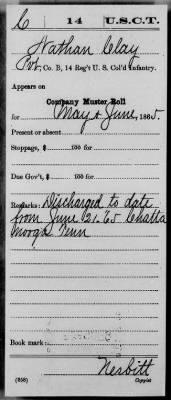 C 14 U.S.C.T.
Nathan Clay
Pvt., Co. B, 14 Reg't U. S. Col'd Infantry.
Appears on
Company Muster Roll
for May & June, 1865.
Present or absent
Stoppage, $ 100 for
Due Gov't, $ 100 for
Remarks: Discharged to date
from June 21. '65 Chatta
nooga Tenn
Book mark:
Nesbitt
(858) Copyist